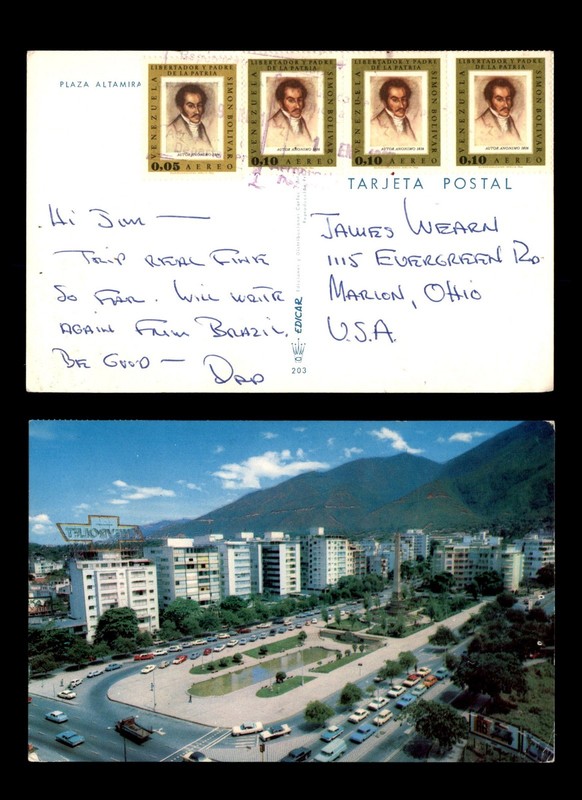 PLAZA ALTAMIRA
LIBERTADOR Y PADRE
DE LA PATRIA
SIMON BOLIVAR
AUTOR ANONIMO 1828
0,05 AEREO
VENEZUELA
LIBERTADOR Y PADRE
DE LA PATRIA
SIMON BOLIVAR
AUTOR ANONIMO 1828
0,10 AEREO
VENEZUELA
LIBERTADOR Y PADRE
DE LA PATRIA
SIMON BOLIVAR
AUTOR ANONIMO 1828
0,10 AEREO
VENEZUELA
LIBERTADOR Y PADRE
DE LA PATRIA
SIMON BOLIVAR
AUTOR ANONIMO 1828
0,10 AEREO
TARJETA POSTAL
Hi Jim —
TRIP REAL FINE
SO FAR. WILL WRITE
AGAIN FROM BRAZIL.
BE GOOD —
DAD
EDICAR
203
JAMES WEARN
1115 EVERGREEN RD.
MARION, OHIO
U.S.A.